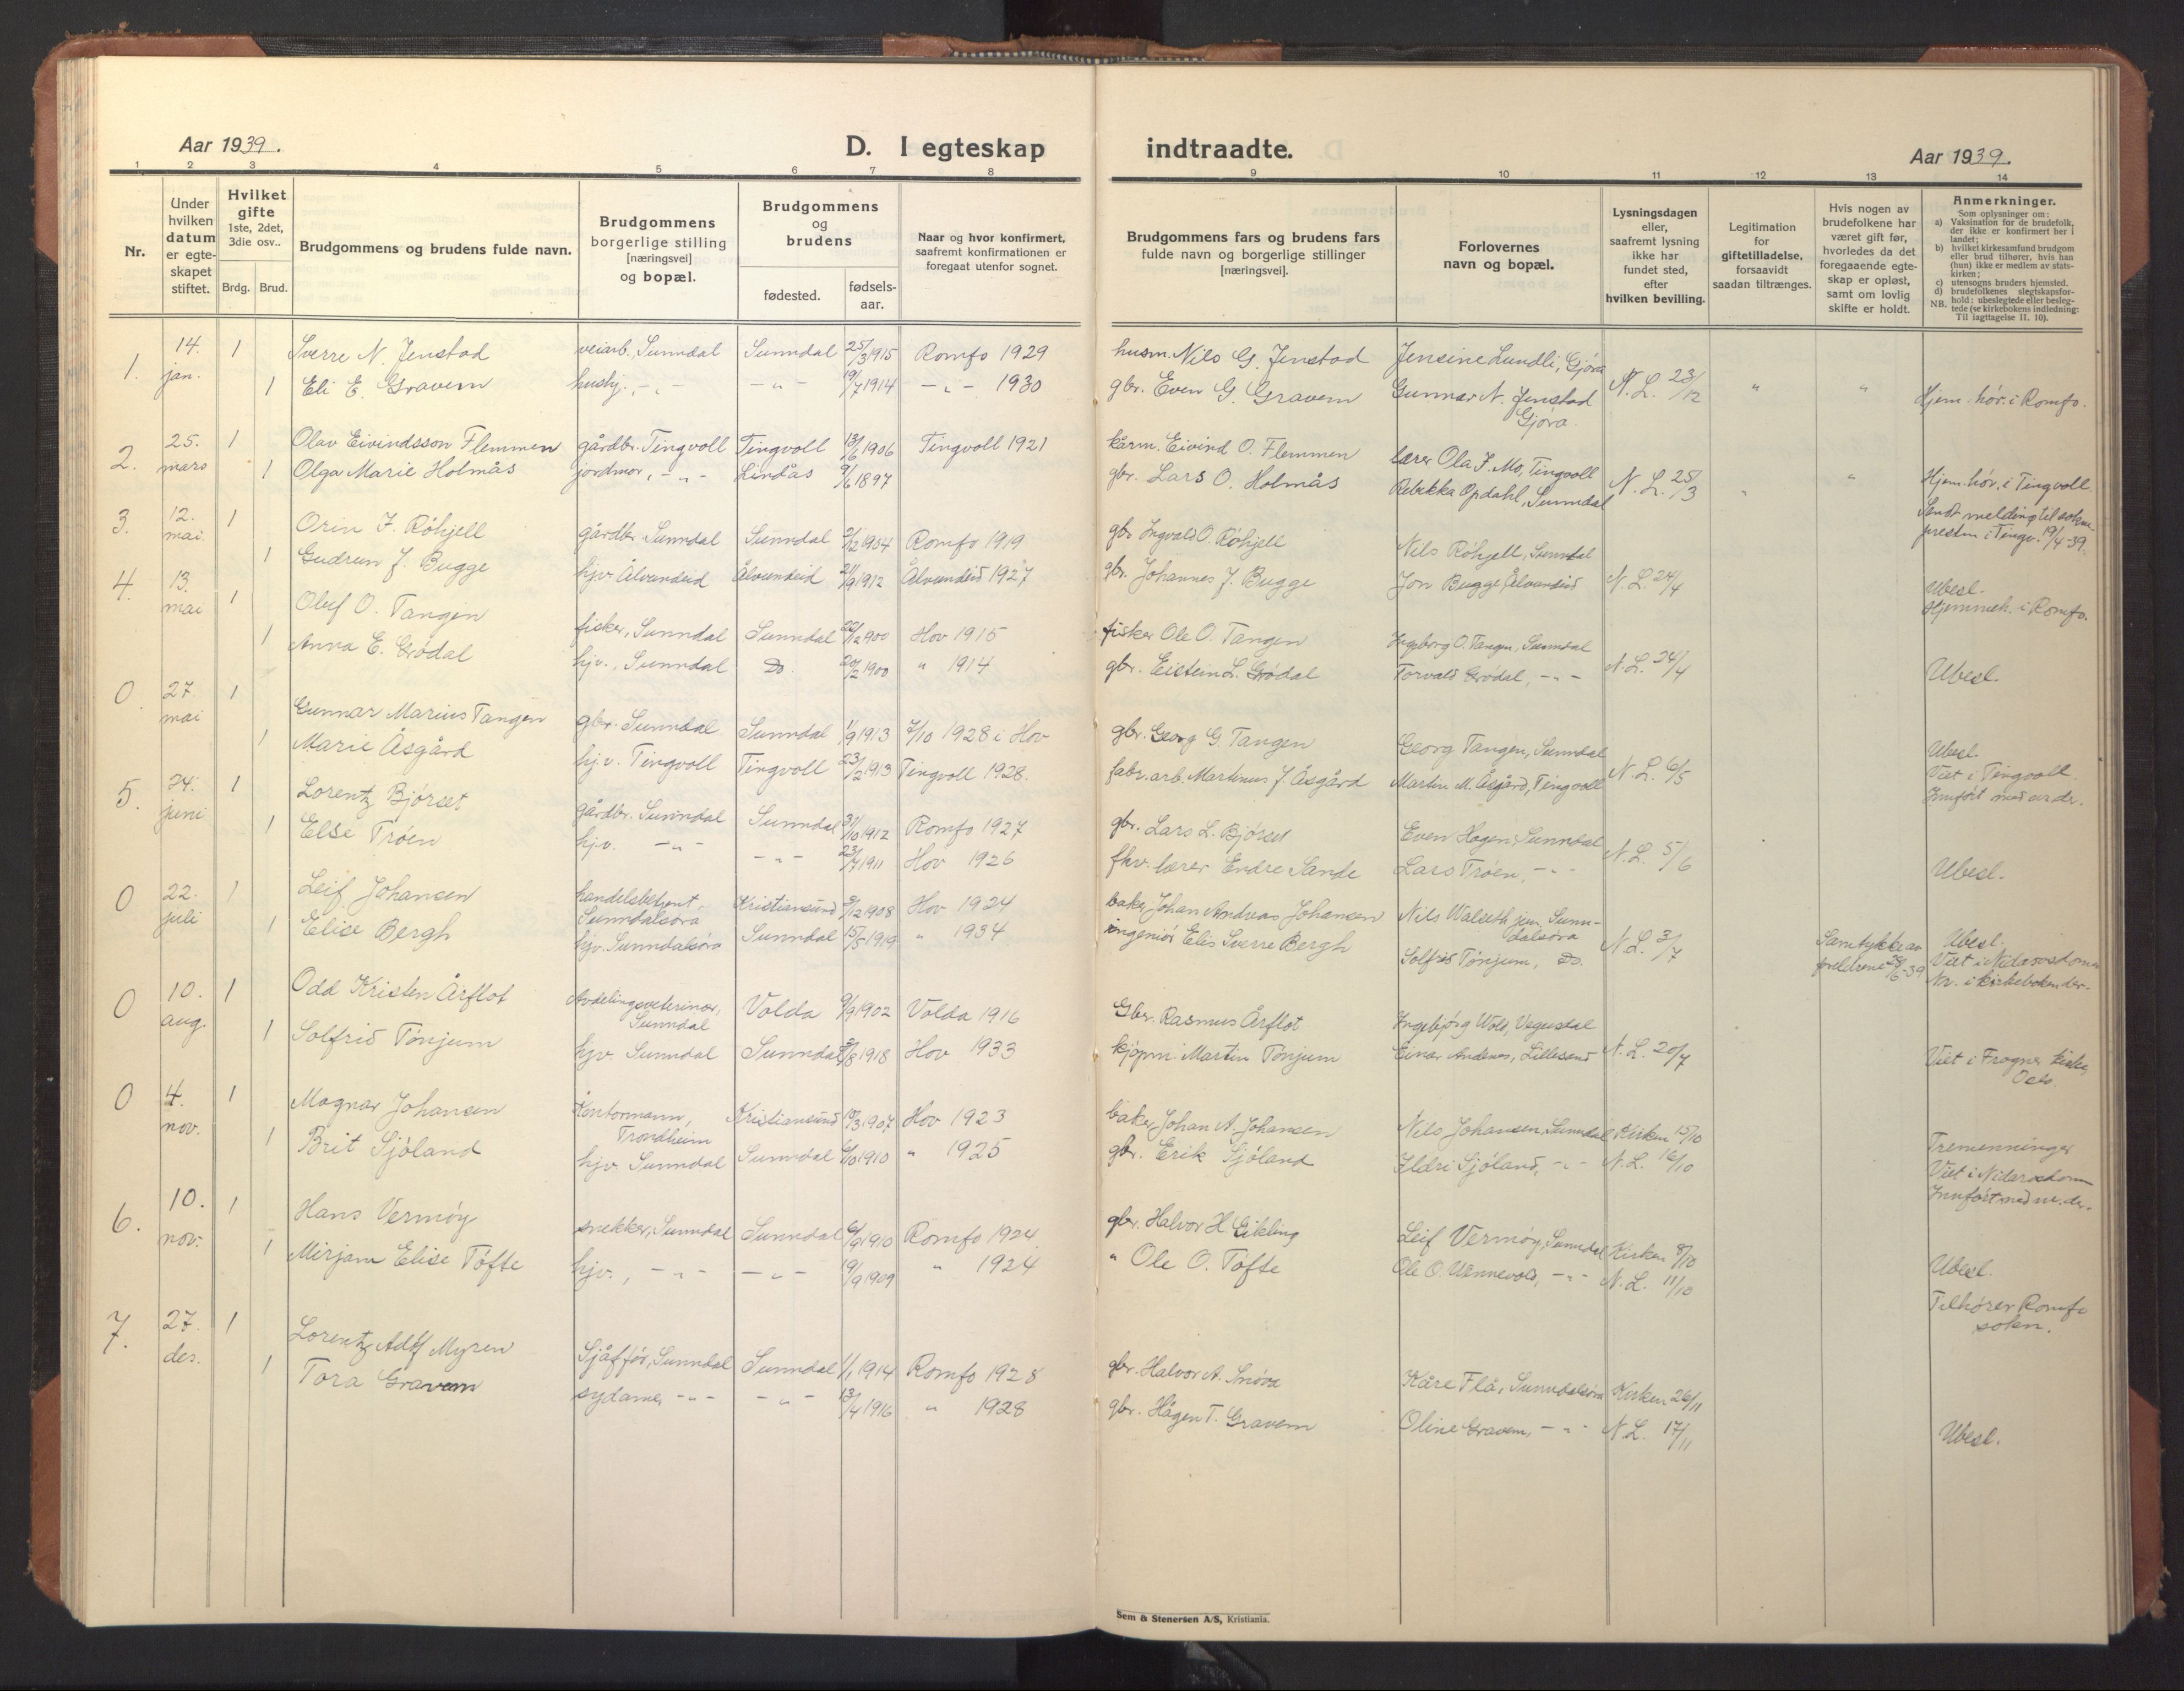 Aar 1939.
D. I egteskap indtraadte.
Aar 1939.
1 2 3 4 5 6 7 8 9 10 11 12 13 14
Nr.
Under hvilken datum er egte-skapet stiftet.
Hvilket gifte 1ste, 2det, 3die osv..
Brdg. Brud.
Brudgommens og brudens fulde navn.
Brudgommens borgerlige stilling [næringsvei] og bopæl.
Brudgommens og brudens
fødested.
fødsels-aar.
Naar og hvor konfirmert, saafremt konfirmationen er foregaat utenfor sognet.
Brudgommens fars og brudens fars fulde navn og borgerlige stillinger [næringsvei].
Forlovernes navn og bopæl.
Lysningsdagen eller, saafremt lysning ikke har fundet sted, efter hvilken bevilling.
Legitimation for giftetilladelse, forsaavidt saadan tiltrænges.
Hvis nogen av brudefolkene har været gift før, hvorledes da det foregaaende egte-skap er opløst, samt om lovlig skifte er holdt.
Anmerkninger.
Som oplysninger om:
a) Vaksination for de brudefolk, der ikke er konfirmert her i landet;
b) hvilket kirkesamfund brudgom eller brud tilhører, hvis han (hun) ikke er medlem av stats-kirken;
c) utensogns bruders hjemsted.
d) brudefolkenes slegtskapsfor-hold: ubeslegtede eller besleg-tede (se kirkebokens indledning: Til iagttagelse II. 10).
NB.
1. 14. jan. 1 Sverre N. Jenstad veiarb., Sunndal Sunndal 25/3 1915 Romfo 1929 husm. Nils G. Jenstad Jensine Lundli, Gjøra
1 Eli E. Gravem hushj. -"- -"- 19/7 1914 -"- 1930 gbr. Even G. Gravem Gunnar N. Jenstad Gjøra N. L. 23/12 " " Hjem. hør. i Romfo.
2. 25. mars 1 Olav Eivindsson Flemmen gårdbr. Tingvoll Tingvoll 13/6 1906 Tingvoll 1921 kårm. Eivind O. Flemmen lærer Ola J. Mo, Tingvoll
1 Olga Marie Holmås jordmor, -"- Lindås 9/6 1897 gbr. Lars O. Holmås Rebekka Opdahl, Sunndal N. L. 25/3 " " Hjem. hør. i Tingvoll.
Sendt melding til soknepresten i Tingv. 19/4-39.
3. 12. mai 1 Orin I. Röhjell gårdbr. Sunndal Sunndal 2/12 1904 Romfo 1919 gbr Ingvald O. Röhjell Nils Röhjell, Sunndal
1 Gudrun J. Bugge hjv. Ålvundeid Ålvundeid 21/9 1912 Ålvundeid 1927 gbr. Johannes J. Bugge Jon Bugge, Ålvundeid N. L. 24/4 Ubesl.
Hjemmeh. i Romfo.
4. 13. mai 1 Oluf O. Tangen fisker, Sunndal Sunndal 22/12 1900 Hov 1915 fisker Ole O. Tangen Ingeborg O. Tangen, Sunndal
1 Anna E. Grödal hjv., Sunndal Do. 20/2 1900 " 1914 gbr. Eistein L. Grödal Torvald Grödal, -"- N. L. 24/4 Ubesl.
0 27. mai 1 Gunnar Marius Tangen gbr. Sunndal Sunndal 1/9 1913 7/10 1928 i Hov gbr. Georg G. Tangen Georg Tangen, Sunndal
1 Marie Åsgård hjv. Tingvoll Tingvoll 23/2 1913 Tingvoll 1928. fabr. arb. Martinus J. Åsgård Martin M. Åsgård, Tingvoll N. L. 6/5 Ubesl.
Viet i Tingvoll.
Innfört med nr. der.
5. 24. juni 1 Lorentz Bjørset gårdbr. Sunndal Sunndal 31/10 1912 Romfo 1927 gbr. Lars L. Bjørset Even Hagen, Sunndal
1 Else Tröen hjv. -"- -"- 23/7 1911 Hov 1926 fhv. lærer Endre Sande Lars Tröen, -"- N. L. 5/6 Ubesl.
0 22. juli 1 Leif Johansen handelsbetjent Sunndalsøra Kristiansund 3/12 1908 Hov 1924 baker Johan Andreas Johansen Nils Walseth jun Sunndalsøra
1 Elise Bergh hjv. Sunndalsøra Sunndal 15/5 1919 " 1934 ingeniör Elis Sverre Bergh Solfrid Tönjum, Do. N. L. 3/7 Samtykke av foreldrene 28/6-39 Ubesl.
Viet i Nidarosdomen
Nr. i kirkeboken der.
0 10. aug. 1 Odd Kristen Årflot Avdelingsveterinær, Sunndal Volda 9/9 1902 Volda 1916 Gbr. Rasmus Årflot Ingebjørg Wold,
1 Solfrid Tönjum hjv. Sunndal Sunndal 3/8 1918 Hov 1933 kjöpm. Martin Tönjum Einar Andenes, Lillesand N. L. 20/7 Viet i Frogner kirke, Oslo.
0 4. nov. 1 Magnar Johansen Kontormann, Trondheim Kristiansund 10/3 1907 Hov 1923 baker Johan A. Johansen Nils Johansen, Sunndal Kirken 15/10
1 Brit Sjöland hjv. Sunndal Sunndal 6/10 1910 " 1925 gbr. Erik Sjöland Ildri Sjöland, -"- N. L. 16/10 Tremenninger
Viet i Nidarosdom
Innfört med nr. der.
6. 10. nov. 1 Hans Vermøy snekker, Sunndal Sunndal 6/9 1910 Romfo 1924 gbr. Halvor H. Eikling Leif Vermøy, Sunndal Kirken 8/10
1 Mirjam Elise Töfte hjv., -"- -"- 19/9 1909 " 1924 " Ole O. Töfte Ole O. Vennevold, -"- N. L. 11/10 Ubesl.
Tilhörer Romfo sokn.
7. 27. des. 1 Lorentz Adolf Myren Sjåffør, Sunndal Sunndal 1/1 1914 Romfo 1928 gbr. Halvor A. Snöva Kåre Flå, Sunndalsøra Kirken 26/11
1 Tora Gravem sydame, -"- -"- 13/4 1916 " 1928 gbr. Hågen T. Gravem Oline Gravem, -"- N. L. 17/11 Ubesl.
Sem & Stenersen A/S, Kristiania.